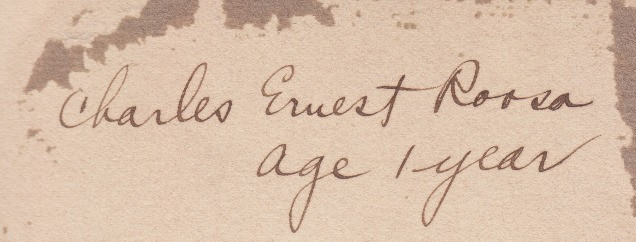 Charles Ernest Roosa
age 1 year